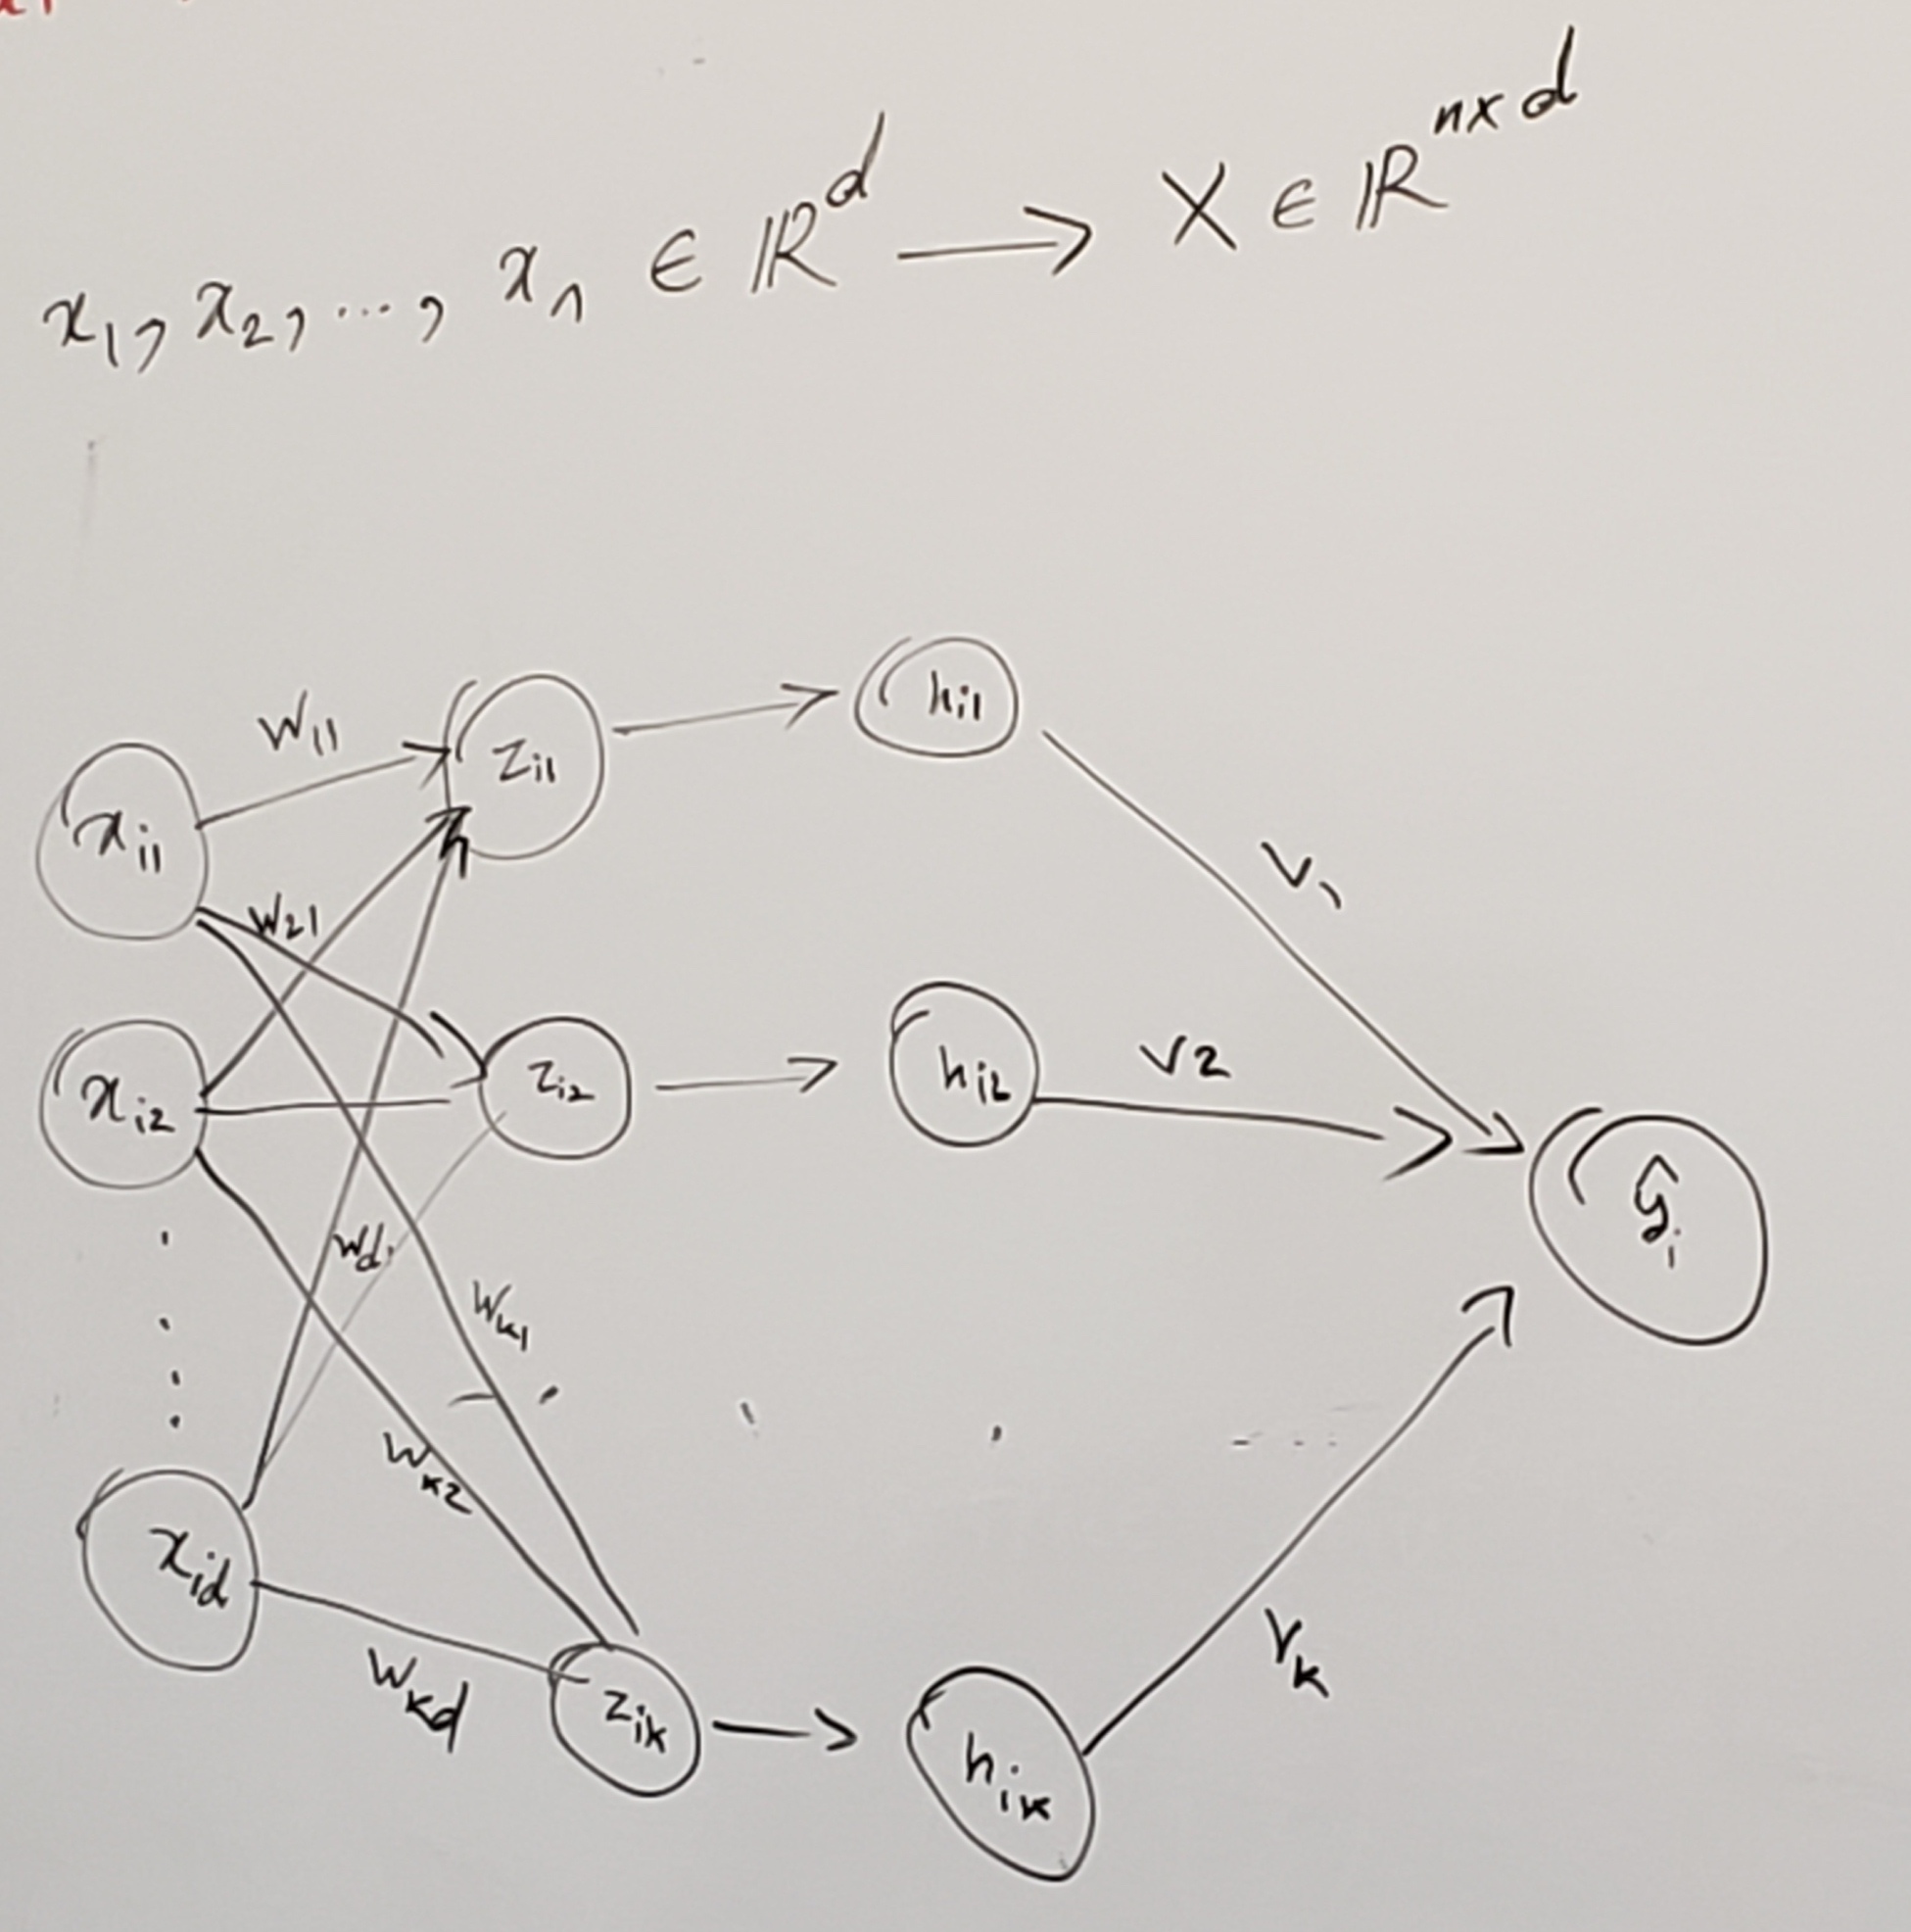 x₁, x₂, ..., xₙ ∈ ℝᵈ → X ∈ ℝⁿˣᵈ
W₁₁
x_{i1} z_{i1} h_{i1}
W₂₁
V₁
x_{i2} z_{i2} h_{i2} V₂
ŷ_i
W_{d1}
W_{k1}
W_{k2}
x_{id}
W_{kd}
z_{ik} h_{ik} V_k